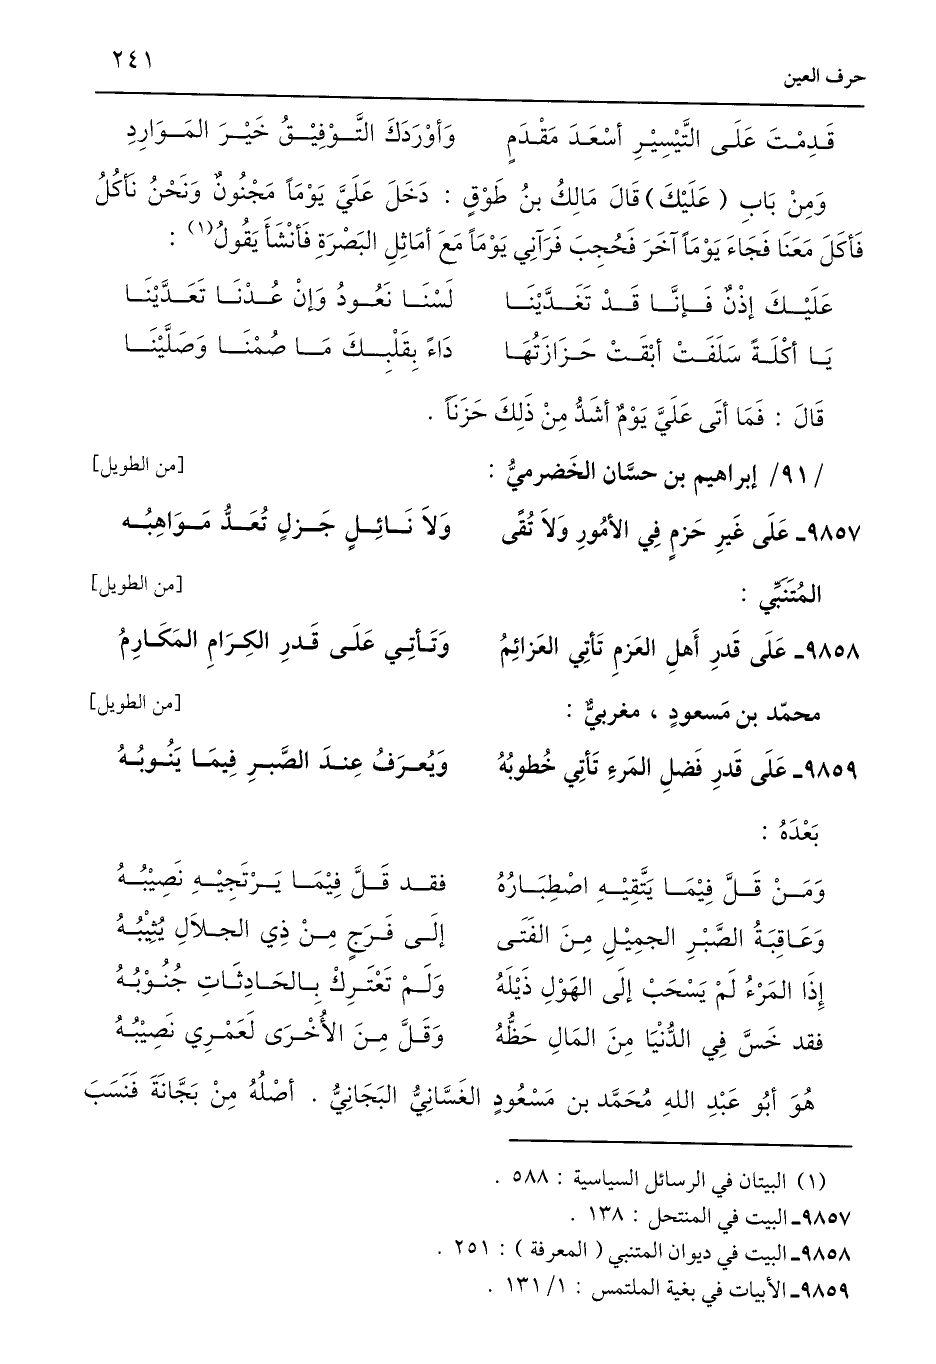 حرف العين
٢٤١
قَدِمْتَ عَلَى التَّيْسِيْرِ أَسْعَدَ مَقْدَمٍ وَأَوْرَدَكَ التَّوْفِيْقُ خَيْرَ المَوَارِدِ
وَمِنْ بَابِ ( عَلَيْكَ ) قَالَ مَالِكُ بنُ طَوْقٍ : دَخَلَ عَلَيَّ يَوْمَاً مَجْنُونٌ وَنَحْنُ نَأْكُلُ
فَأَكَلَ مَعَنَا فَجَاءَ يَوْمَاً آخَرَ فَحُجِبَ فَرَآنِي يَوْمَاً مَعَ أَمَاثِلِ البَصْرَةِ فَأَنْشَأَ يَقُولُ(١) :
عَلَيْكَ إِذْنٌ فَإِنَّا قَدْ تَغَدَّيْنَا لَسْنَا نَعُودُ وَإِنْ عُدْنَا تَعَدَّيْنَا
يَا أَكْلَةً سَلَفَتْ أَبْقَتْ حَزَازَتُهَا دَاءً بِقَلْبِكَ مَا صُمْنَا وَصَلَّيْنَا
قَالَ : فَمَا أَتَى عَلَيَّ يَوْمٌ أَشَدُّ مِنْ ذَلِكَ حَزَنَاً .
/٩١/ إبراهيم بن حسَّان الحَضرميُّ : [من الطويل]
٩٨٥٧ـ عَلَى غَيرِ حَزمٍ فِي الأمُورِ وَلاَ تُقًى وَلاَ نَائِلٍ جَزلٍ تُعَدُّ مَوَاهِبُه
المُتَنَبِّي : [من الطويل]
٩٨٥٨ـ عَلَى قَدرِ أَهلِ العَزمِ تَأتِي العَزائِمُ وَتَأتِي عَلَى قَدرِ الكِرَامِ المَكَارِمُ
محمّد بن مَسعودٍ ، مغربيٌّ : [من الطويل]
٩٨٥٩ـ عَلَى قَدرِ فَضلِ المَرءِ تَأتِي خُطوبُهُ وَيُعرَفُ عِندَ الصَّبرِ فِيمَا يَنُوبُهُ
بَعْدَهُ :
وَمَنْ قَلَّ فِيْمَا يَتَّقِيْهِ اصْطِبَارُهُ فقد قَلَّ فِيْمَا يَرْتَجِيْهِ نَصِيْبُهُ
وَعَاقِبَةُ الصَّبْرِ الجمِيْلِ مِنَ الفَتَى إلَى فَرَجٍ مِنْ ذِي الجلاَلِ يُثِيْبُهُ
إِذَا المَرْءُ لَمْ يَسْحَبْ إِلَى الهَوْلِ ذَيْلَهُ وَلَمْ تَعْتَرِكْ بِالحَادِثَاتِ جُنُوْبُهُ
فقد خَسَّ فِي الدُّنْيَا مِنَ المَالِ حَظُّهُ وَقَلَّ مِنَ الأُخْرَى لَعَمْرِي نَصِيْبُهُ
هُوَ أَبُو عَبْدِ اللهِ مُحَمَّد بن مَسْعُودٍ الغَسَّانِيُّ البَجَانِيُّ . أَصْلُهُ مِنْ بَجَّانَةَ فَنَسَبَ
(١) البيتان في الرسائل السياسية : ٥٨٨ .
٩٨٥٧ـ البيت في المنتحل : ١٣٨ .
٩٨٥٨ـ البيت في ديوان المتنبي ( المعرفة ) : ٢٥١ .
٩٨٥٩ـ الأبيات في بغية الملتمس : ١/ ١٣١ .